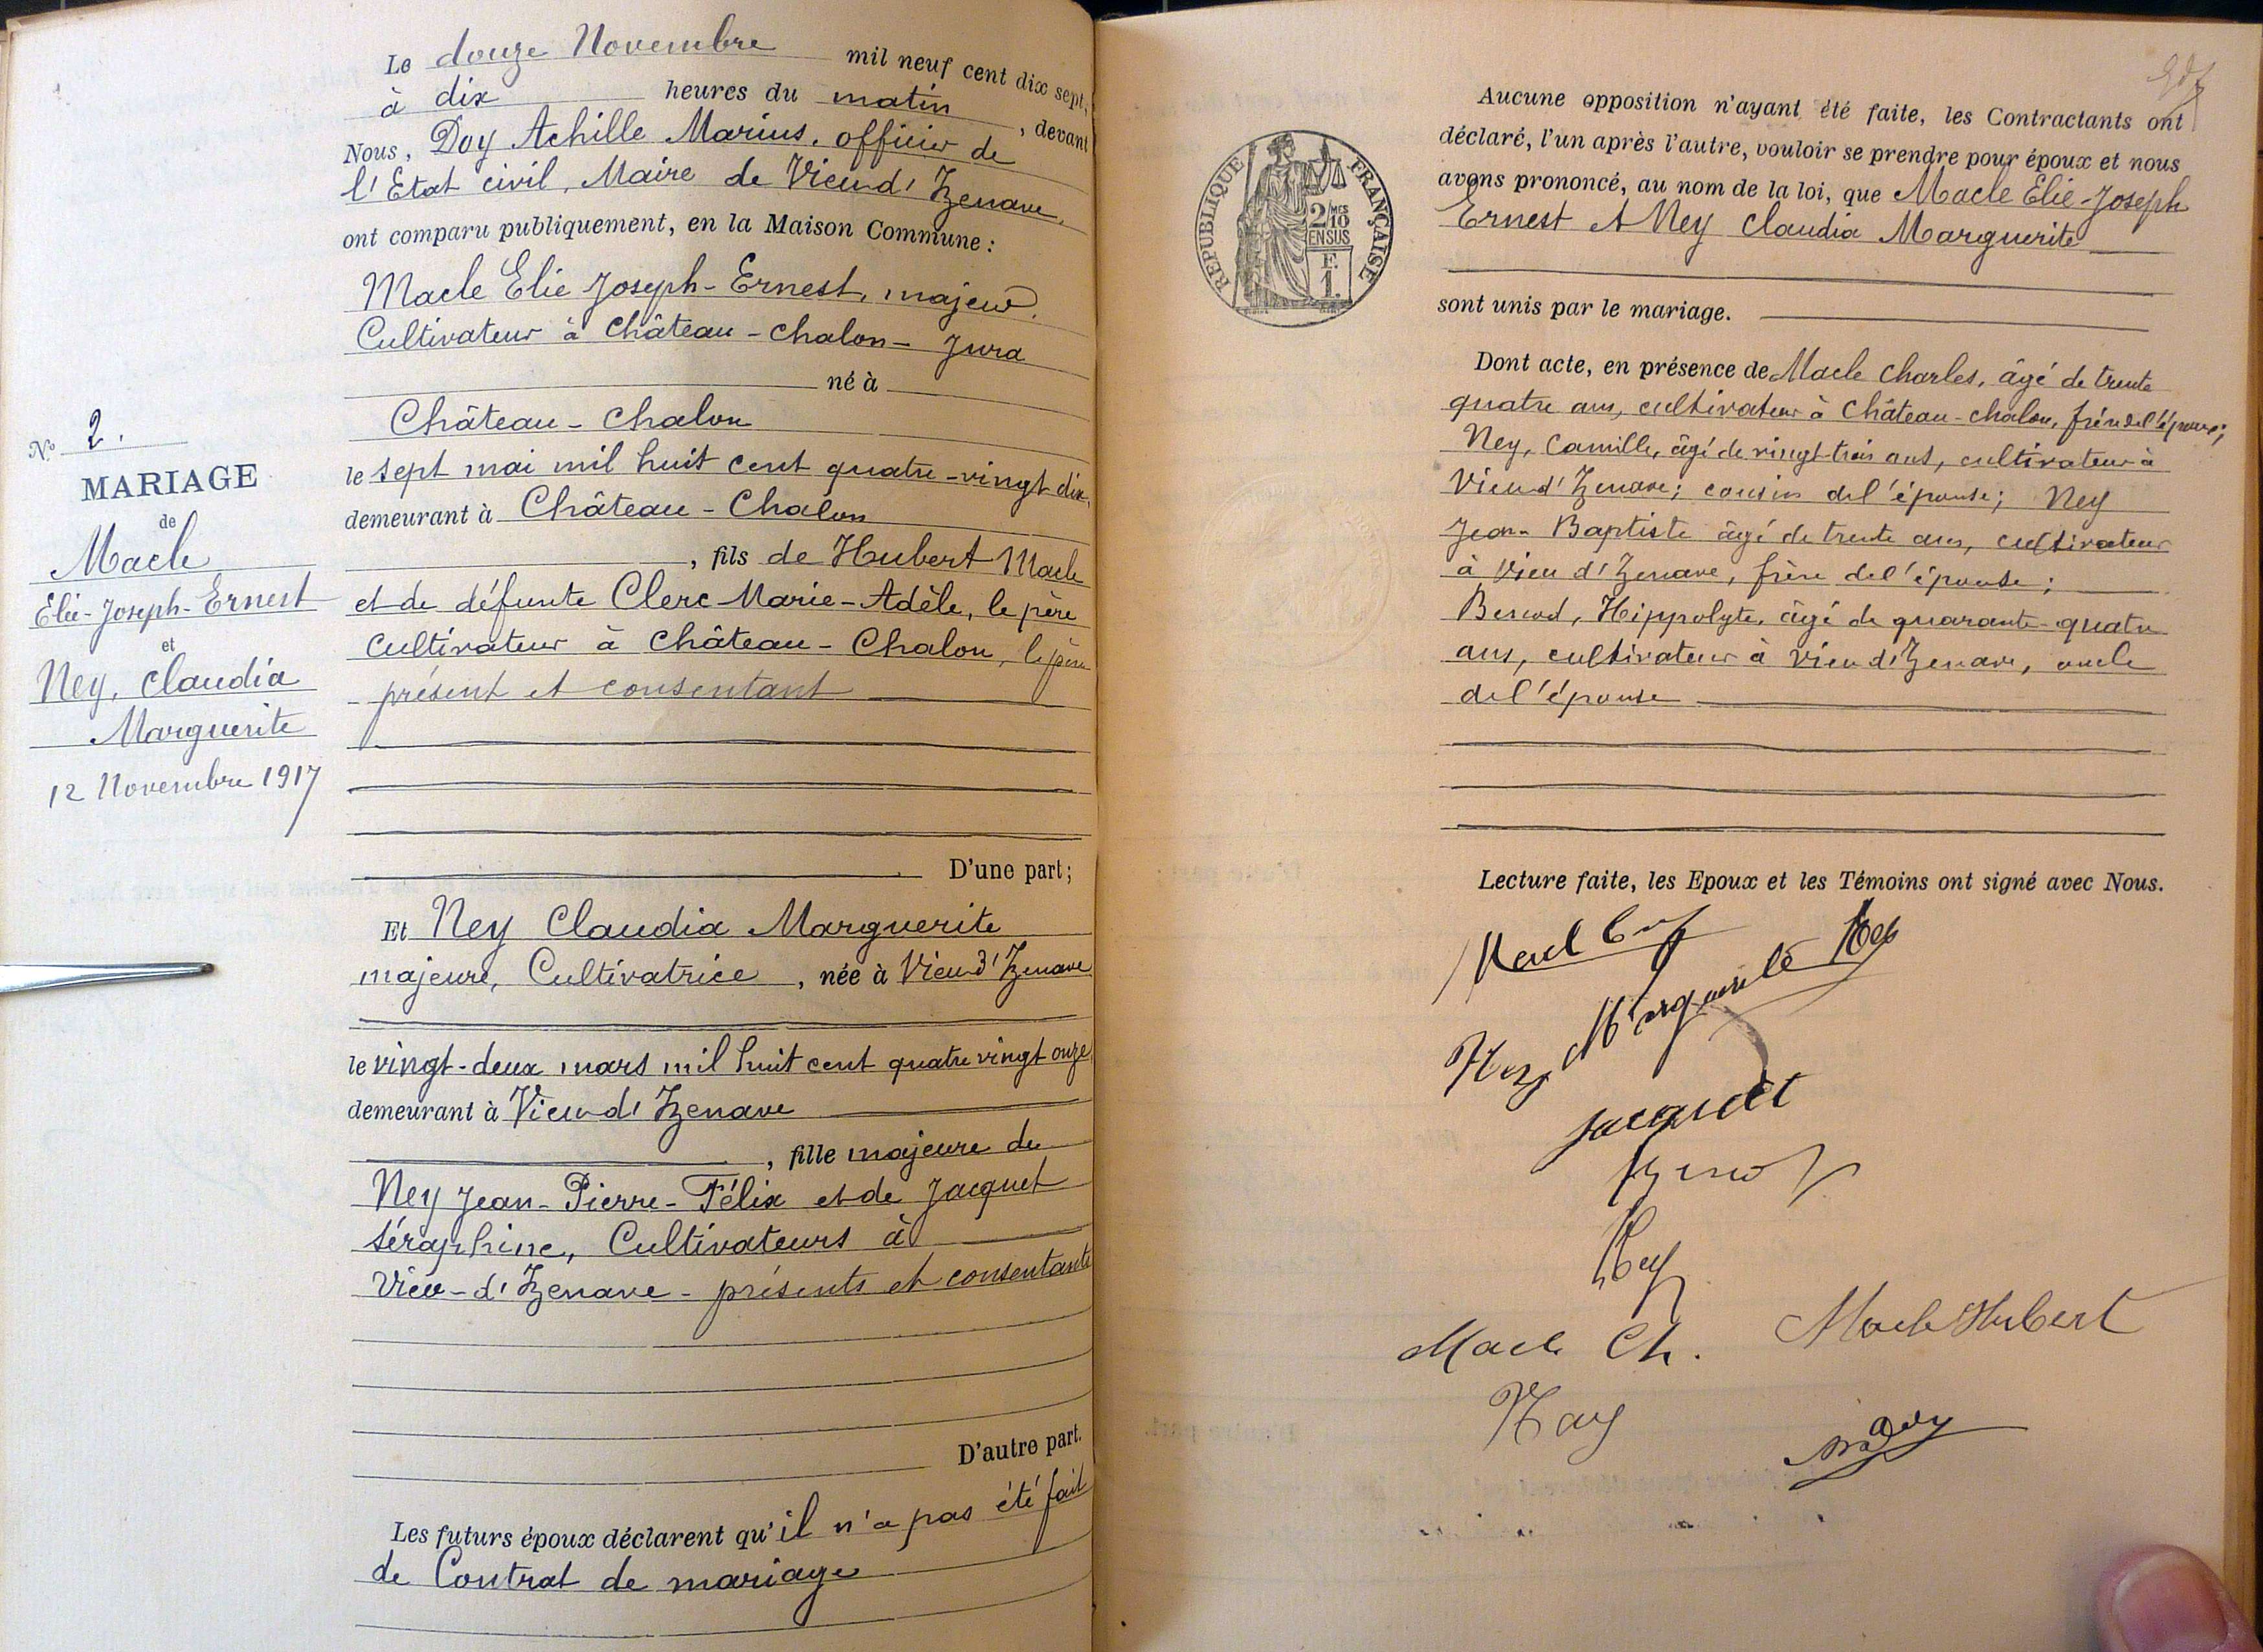 Le douze Novembre mil neuf cent dix sept,
à dix heures du matin, devant
Nous, Doy Achille Marius, officier de
l'Etat civil, Maire de Vieu d'Izenave,
ont comparu publiquement, en la Maison Commune :
Macle Elie Joseph-Ernest, majeur,
Cultivateur à Château-Chalon - Jura
né à
Château-Chalon
le sept mai mil huit cent quatre-vingt dix
demeurant à Château-Chalon
, fils de Hubert Macle
et de défunte Clerc Marie-Adèle, le père
Cultivateur à Château-Chalon, le père
présent et consentant
D'une part;
Et Ney Claudia Marguerite
majeure, Cultivatrice, née à Vieu d'Izenave
le vingt-deux mars mil huit cent quatre vingt onze
demeurant à Vieu d'Izenave
, fille majeure de
Ney Jean-Pierre-Félix et de Jacquet
Séraphine, Cultivateurs à
Vieu-d'Izenave - présents et consentants
D'autre part.
Les futurs époux déclarent qu'il n'a pas été fait
de Contrat de mariage
No 2.
MARIAGE
de
Macle
Elie-Joseph-Ernest
et
Ney, Claudia
Marguerite
12 Novembre 1917
RÉPUBLIQUE FRANÇAISE
2/10 MES
EN SUS
F.
1.
Aucune opposition n'ayant été faite, les Contractants ont
déclaré, l'un après l'autre, vouloir se prendre pour époux et nous
avons prononcé, au nom de la loi, que Macle Elie-Joseph
Ernest et Ney Claudia Marguerite
sont unis par le mariage.
Dont acte, en présence de Macle Charles, âgé de trente
quatre ans, cultivateur à Château-Chalon, frère de l'époux;
Ney, Camille, âgé de vingt-trois ans, cultivateur à
Vieu d'Izenave; cousin de l'épouse; Ney
Jean-Baptiste âgé de trente ans, cultivateur
à Vieu d'Izenave, frère de l'épouse;
Benod, Hippolyte, âgé de quarante-quatre
ans, cultivateur à Vieu d'Izenave, oncle
de l'épouse
Lecture faite, les Epoux et les Témoins ont signé avec Nous.
Marguerite Ney
Ney
Jacquet
Ney
Macle Ch.
Macle Hubert
Ney